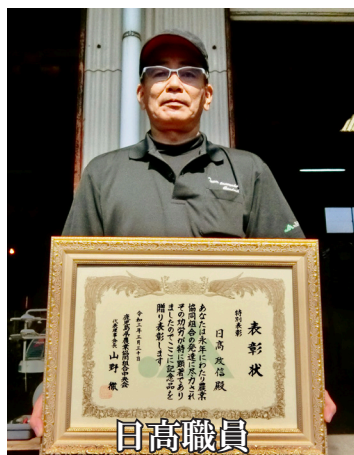 表彰状
特別表彰
日高政信殿
あなたは永年にわたり農業
協同組合の発達に尽力され
その功労が特に顕著であり
ましたのでここに記念品を
贈り表彰します
令和三年三月三十日
鹿児島県農業協同組合中央会
代表理事会長 山野 徹
日高職員